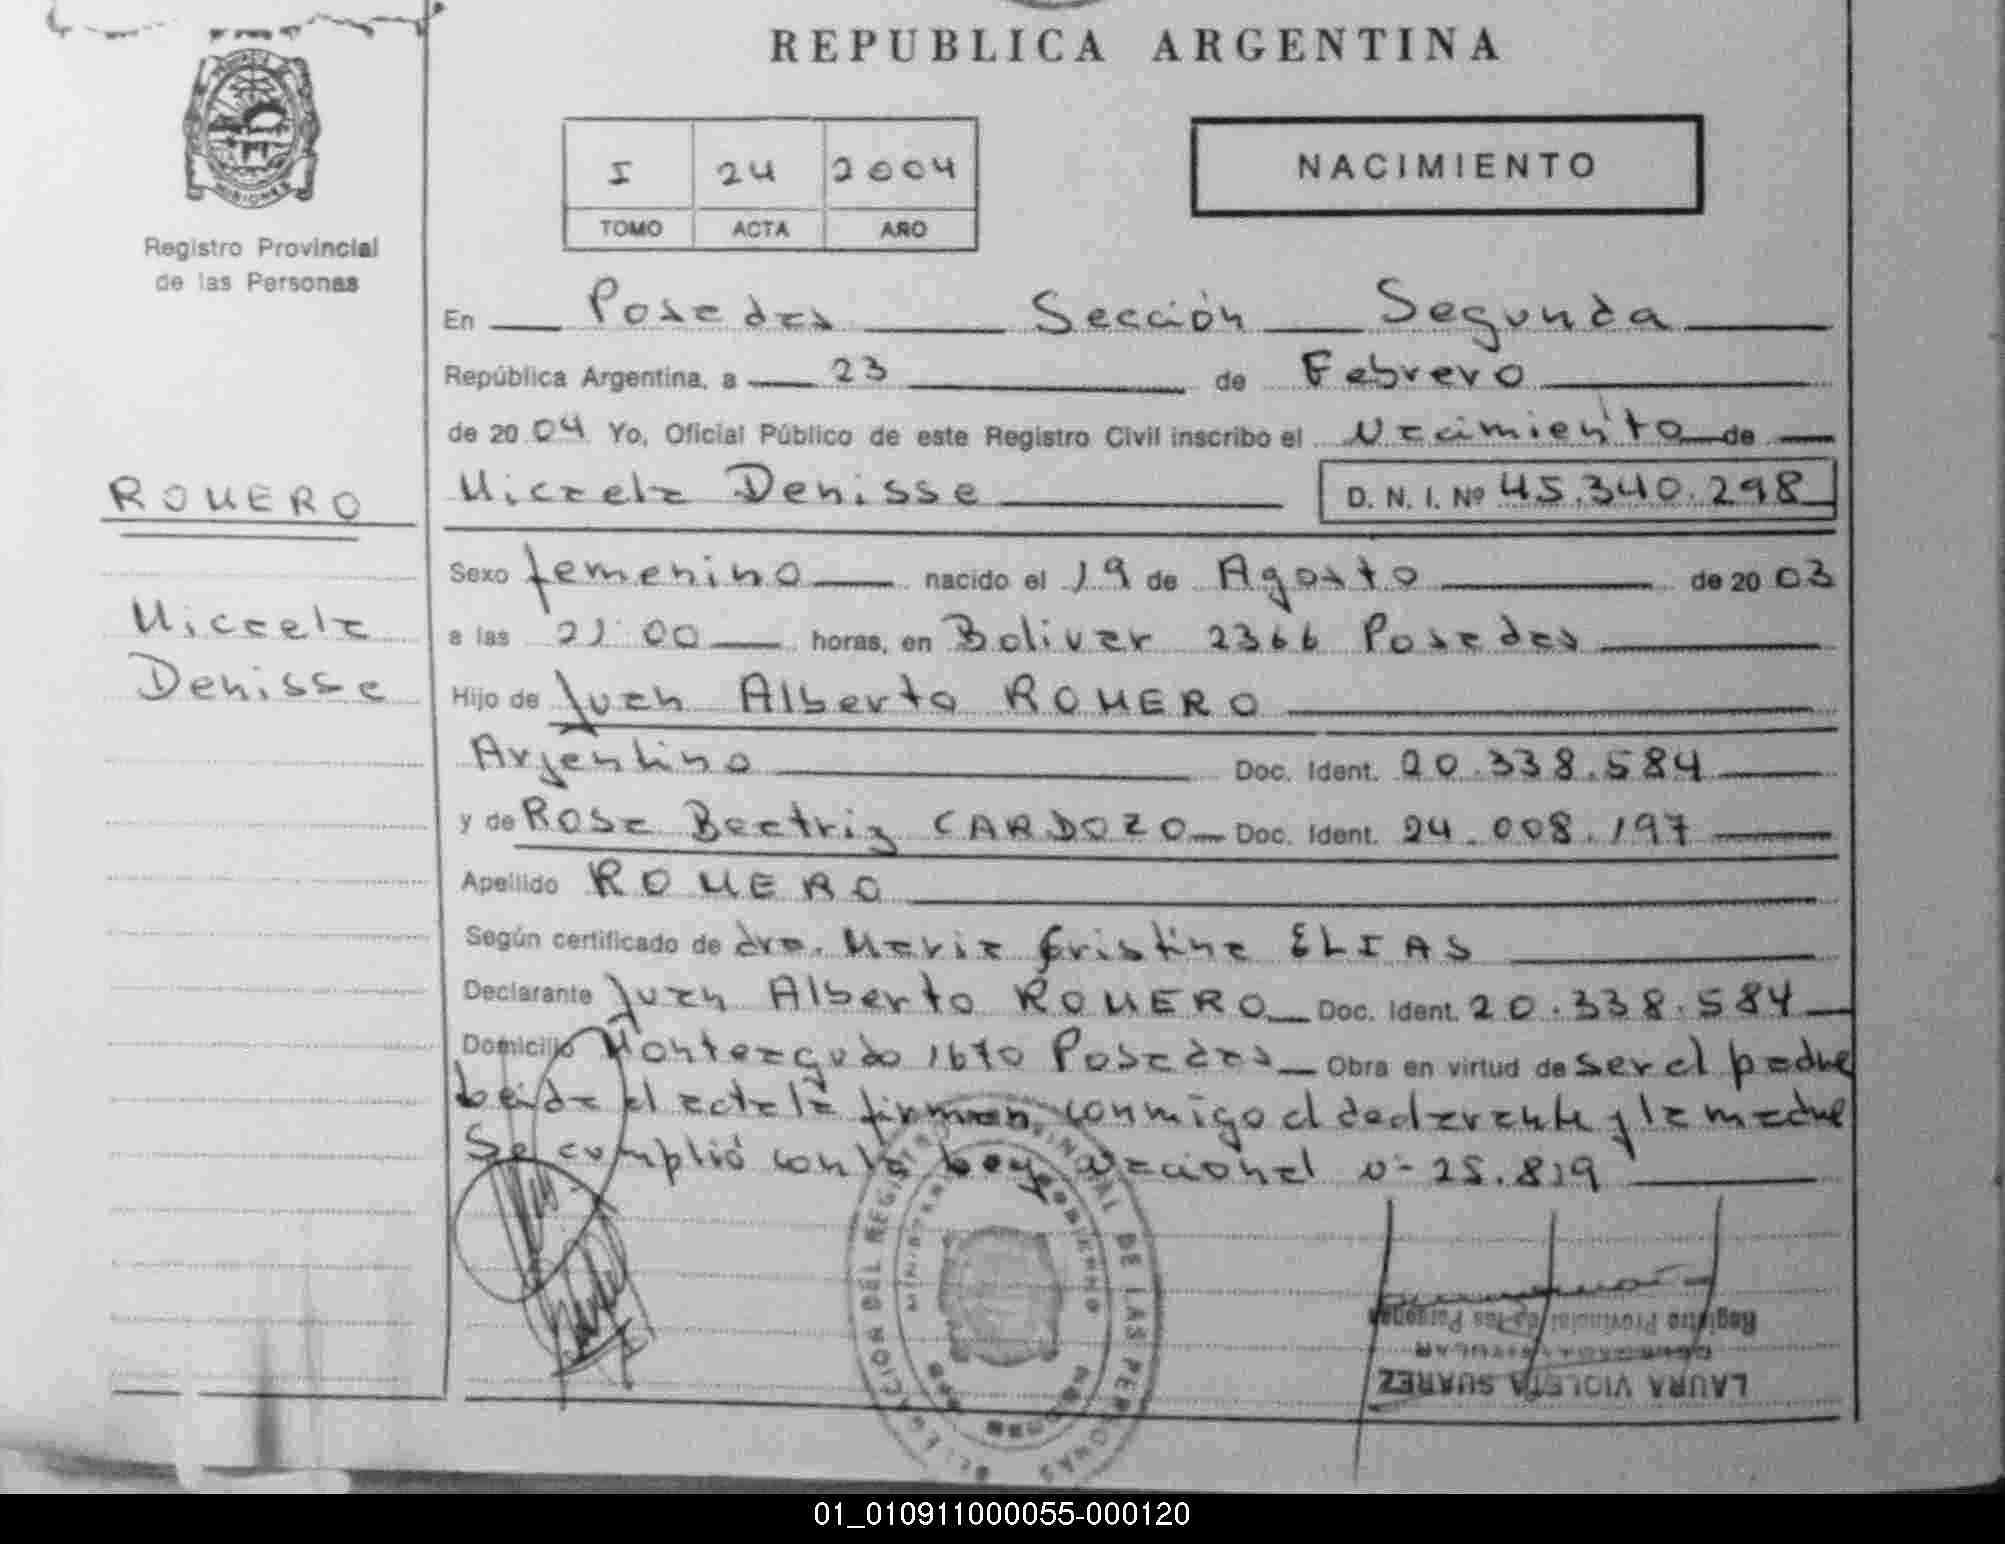 REPUBLICA ARGENTINA
MISIONES
Registro Provincial
de las Personas
I 24 2004
TOMO ACTA AÑO
NACIMIENTO
En Posadas Sección Segunda
República Argentina, a 23 de Febrero
de 2004 Yo, Oficial Público de este Registro Civil inscribo el Nacimiento de
Micaela Denisse D. N. I. Nº 45.340.298
ROMERO
Micaela
Denisse
Sexo femenino nacido el 19 de Agosto de 2003
a las 21:00 horas, en Bolivar 2366 Posadas
Hijo de Juan Alberto ROMERO
Argentino Doc. Ident. 20.338.584
y de Rosa Beatriz CARDOZO Doc. Ident. 24.008.197
Apellido ROMERO
Según certificado de dra. Maria Cristina ELIAS
Declarante Juan Alberto ROMERO Doc. Ident. 20.338.584
Domicilio Monteagudo 1670 Posadas Obra en virtud de ser el padre
Leida el acta la firman conmigo el declarante y la madre
Se cumplió con la Ley Nacional Nº 25.819
DEL REGISTRO PROVINCIAL DE LAS PERSONAS
MINISTERIO GOBIERNO
Registro Provincial de las Personas
LAURA VIOLETA SUAREZ
01_010911000055-000120